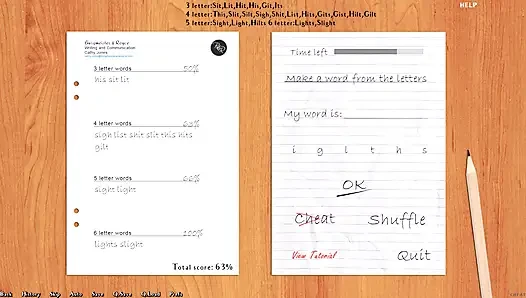 3 letter:Sit,Lit,Hit,His,Git,Its
4 letter:This,Slit,Silt,Sigh,Shit,List,Hits,Gits,Gist,Hilt,Gilt
5 letter:Sight,Light,Hilts 6 letter:Lights,Slight
HELP
Writing and Communication
Cathy Jones
3 letter words 50%
his sit lit
4 letter words 63%
sigh list shit slit this hits
gilt
5 letter words 66%
sight light
6 letter words 100%
lights slight
Total score: 63%
Time left
Make a word from the letters
My word is:
i g l t h s
OK
Cheat Shuffle
View Tutorial Quit
Back History Skip Auto Save Q.Save Q.Load Prefs